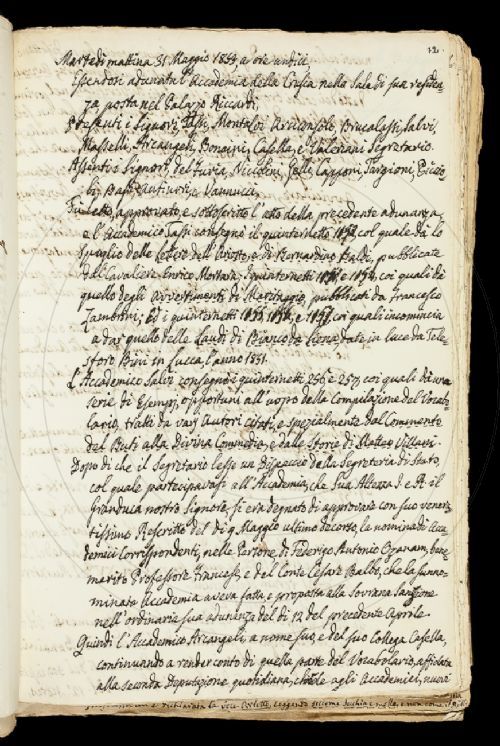 12.
Martedì mattina 31 Maggio 1853 a ore undici
Essendosi adunata l'Accademia della Crusca nella Sala di sua residen-
za posta nel Palazzo Riccardi,
Presenti i Signori, Tassi, Montalvi Arciconsolo, Brucalassi, Salvi,
Masselli, Arcangeli, Bonaini, Casella, e Valeriani Segretario.
Assenti i Signori, del Furia, Niccolini, Capponi, Targioni,
e Vannucci.
Fu letto, approvato, e sottoscritto l'atto della precedente adunanza,
e l'Accademico Tassi consegnò il quinternetto col quale dà lo
spoglio delle lettere dell'Ariosto, e di Bernardino Baldi, pubblicate
dal Cavaliere Enrico Mortara, i quinternetti e coi quali dà
quello degli Avvertimenti di Maritaggio, pubblicati da Francesco
Zambrini; Ed i quinternetti e coi quali incomincia
a dar quello delle Laudi di Bianco da Siena, date in luce da Tele-
sforo Bini in Lucca l'anno 1851.
L'Accademico Salvi consegnò i quinternetti 256 e 257 coi quali dà una
serie di Esempi, opportuni all'uopo della Compilazione del Vocab-
lario, tratti da varj Autori citati, e spezialmente dal Commento
del Buti alla Divina Commedia, e dalle Storie di Matteo Villani.
Dopo di che il Segretario lesse un Dispaccio della Segreteria di Stato,
col quale partecipavasi all'Accademia, che Sua Altezza I. e R. il
Granduca nostro Signore, si era degnato di approvare con suo venera-
tissimo Rescritto del dì 9. Maggio ultimo decorso, la nomina di Acca-
demici Corrispondenti, nelle Persone di Federigo Antonio Ozanam, bene-
merito Professore Francese, e del Conte Cesare Balbo, che la sunno-
minata Accademia aveva fatta, e proposta alla Sovrana Sanzione
nell'ordinaria sua adunanza del dì 12 del precedente Aprile.
Quindi l'Accademico Arcangeli, a nome suo, e del suo Collega Casella,
continuando a render conto di quella parte del Vocabolario, affidata
alla seconda Deputazione quotidiana, chiede agli Accademici, nuovi